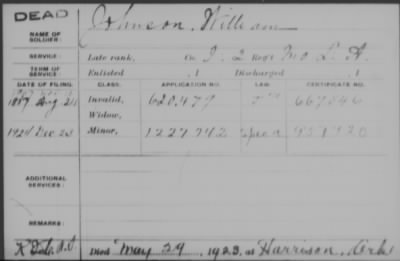 DEAD
NAME OF SOLDIER: Johnson, William
SERVICE: Late rank, Co. I, 2 Reg't Mo L. A.
TERM OF SERVICE: Enlisted , 1 Discharged , 1
DATE OF FILING: CLASS: APPLICATION NO. LAW: CERTIFICATE NO.
1887 Aug 211 Invalid, 620,479 667,846
Widow,
1924 Dec 23 Minor, 1227742 951920
ADDITIONAL SERVICES:
REMARKS:
Died May 29, 1923, at Harrison, Ark